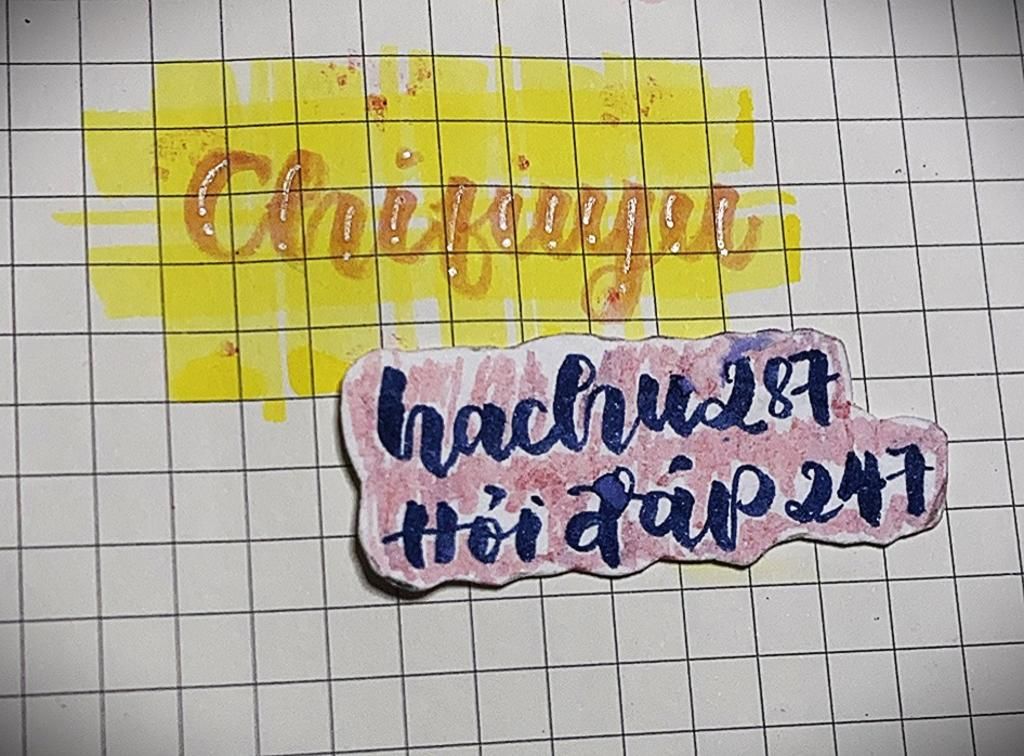 Chifuyu
hachu287
Hỏi đáp 247